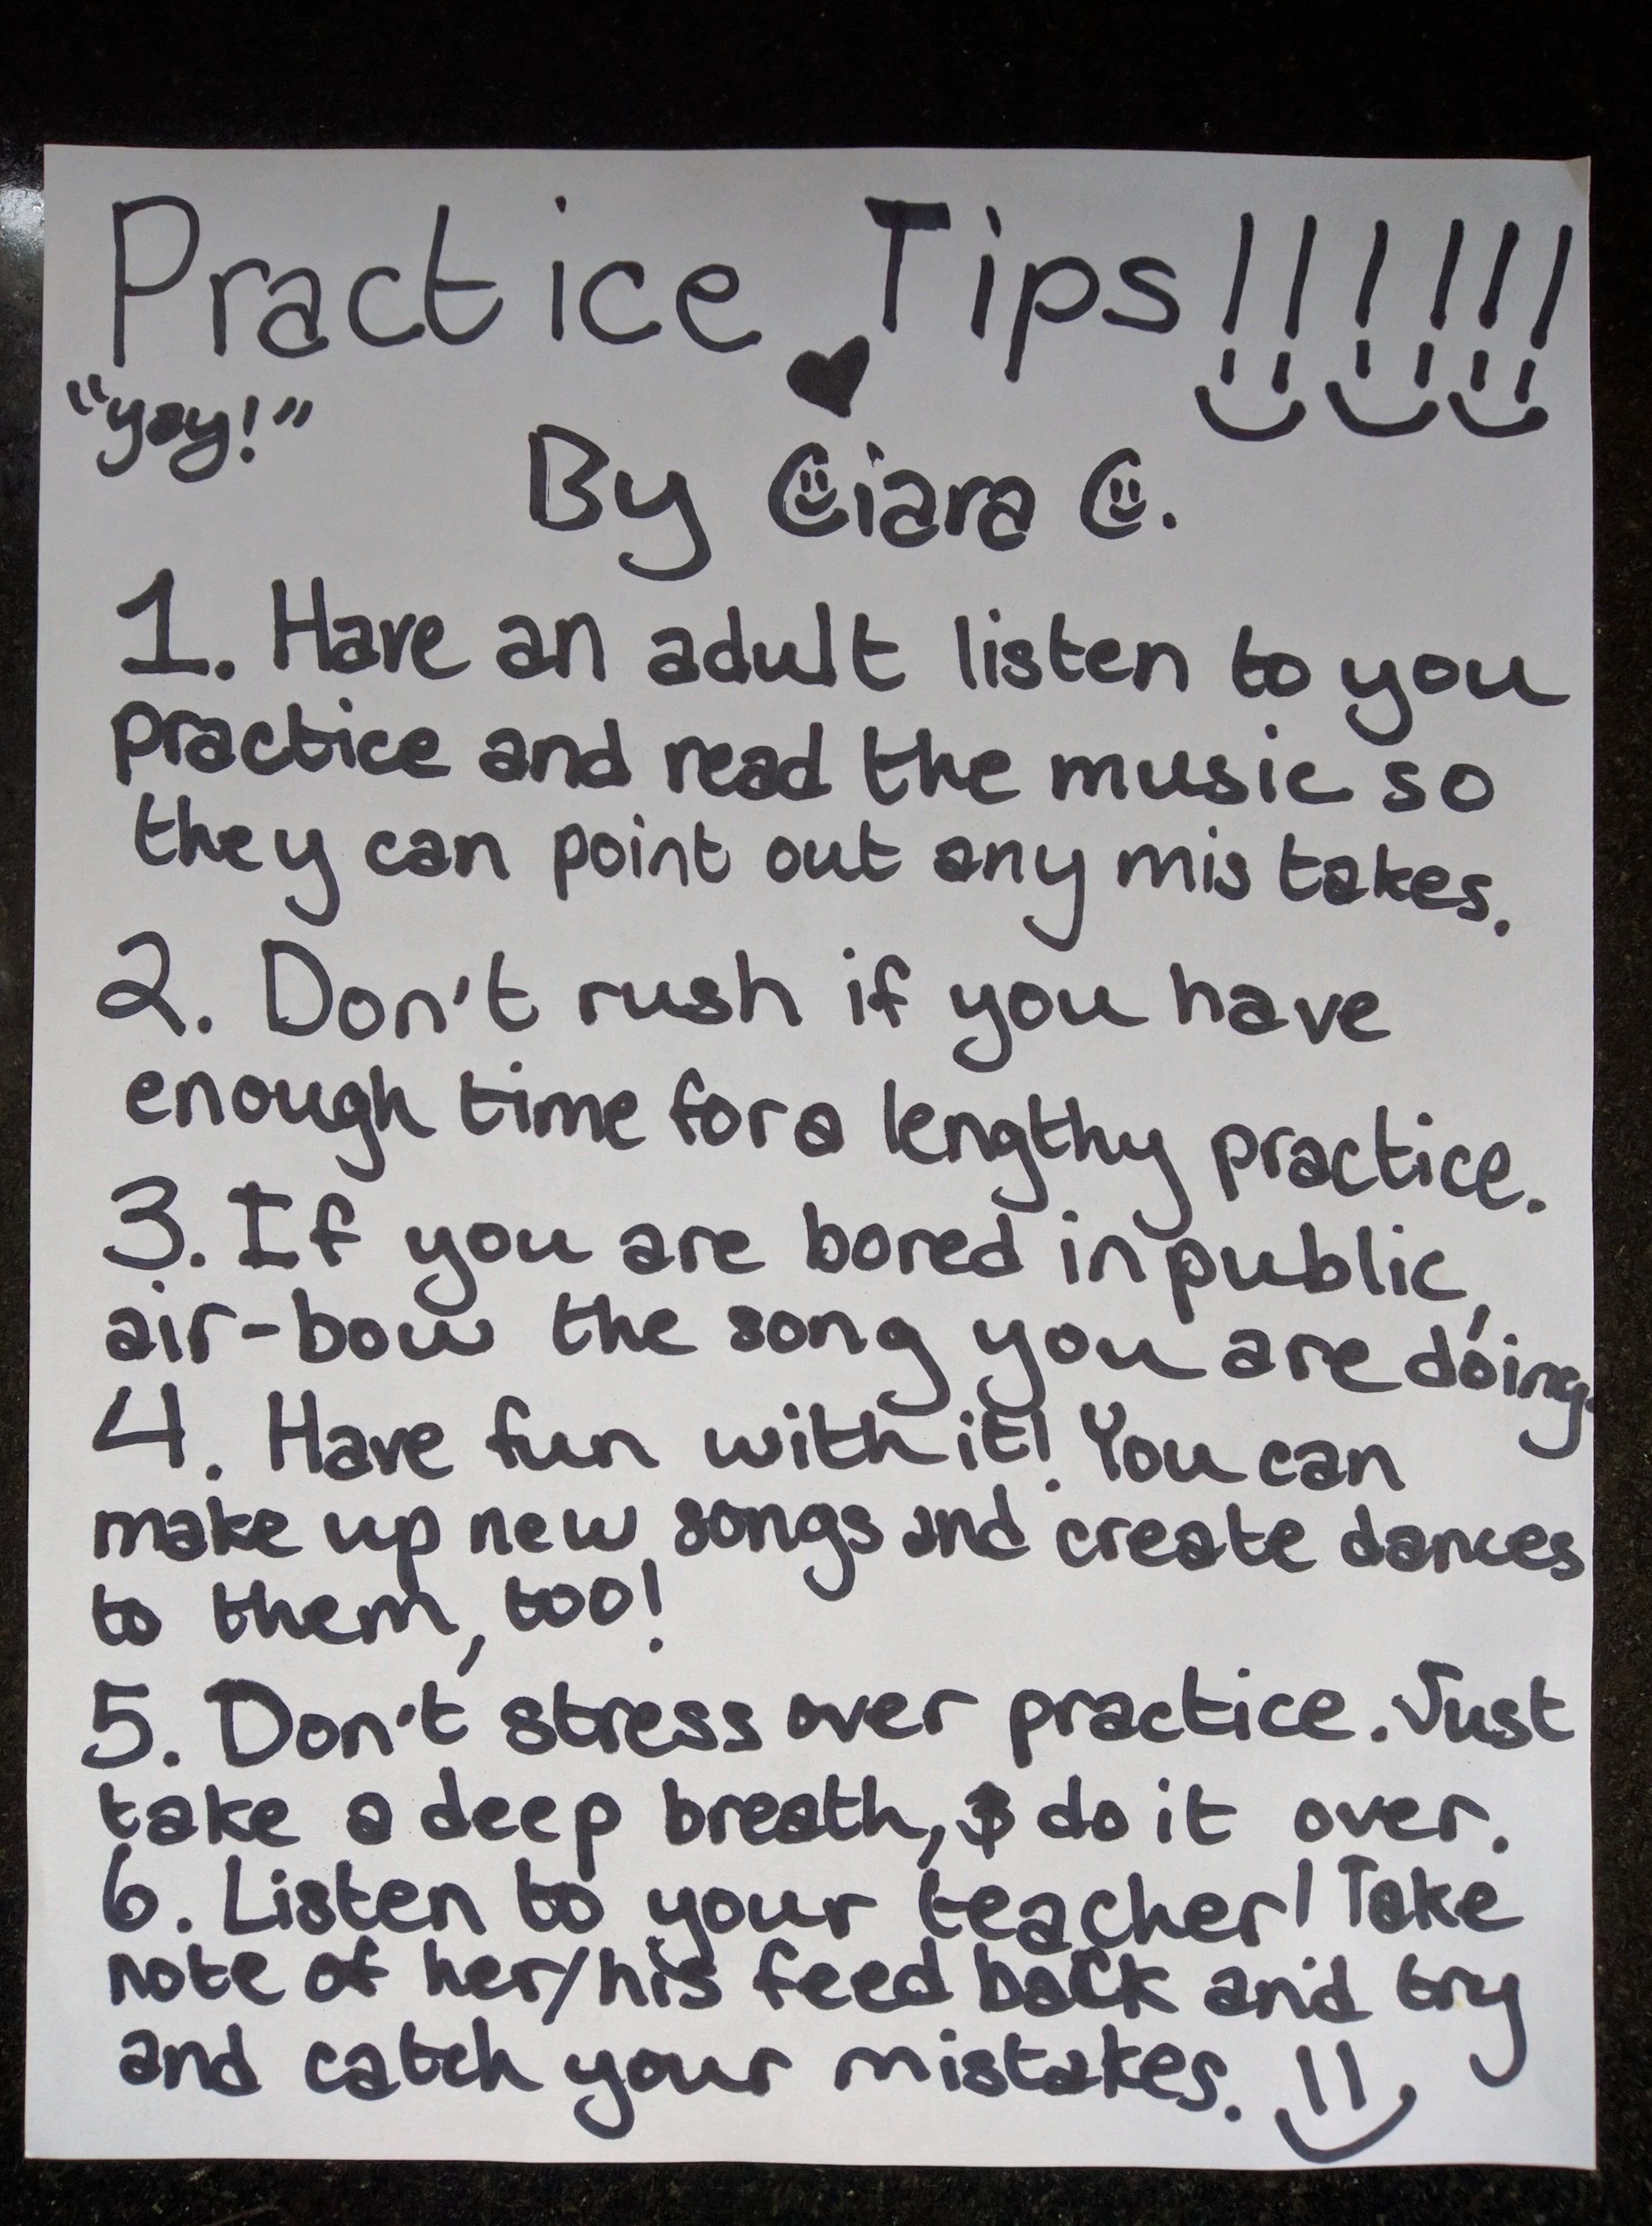 Practice Tips!!!!!!
"yay!"
By Ciara C.
1. Have an adult listen to you
practice and read the music so
they can point out any mistakes.
2. Don't rush if you have
enough time for a lengthy practice.
3. If you are bored in public,
air-bow the song you are doing.
4. Have fun with it! You can
make up new songs and create dances
to them, too!
5. Don't stress over practice. Just
take a deep breath, & do it over.
6. Listen to your teacher! Take
note of her/his feed back and try
and catch your mistakes.